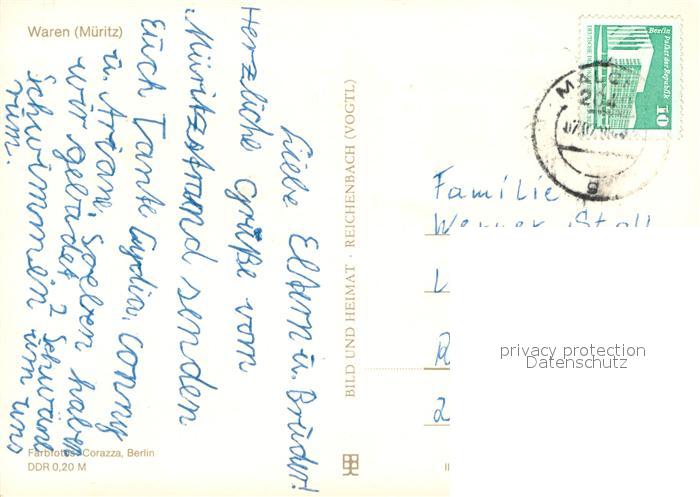 Waren (Müritz)
Liebe Eltern u. Brüder!
Herzliche Grüße vom
Müritzstrand senden
Euch Tante Lydia, Conny
u. Ariane. Soeben haben
wir gebadet 2 Schwäne
schwimmen um uns
rum.
Farbfotos: Corazza, Berlin
DDR 0,20 M
BILD UND HEIMAT · REICHENBACH (VOGTL)
Berlin Palast der Republik
10
Familie
Werner Stoll
privacy protection
Datenschutz